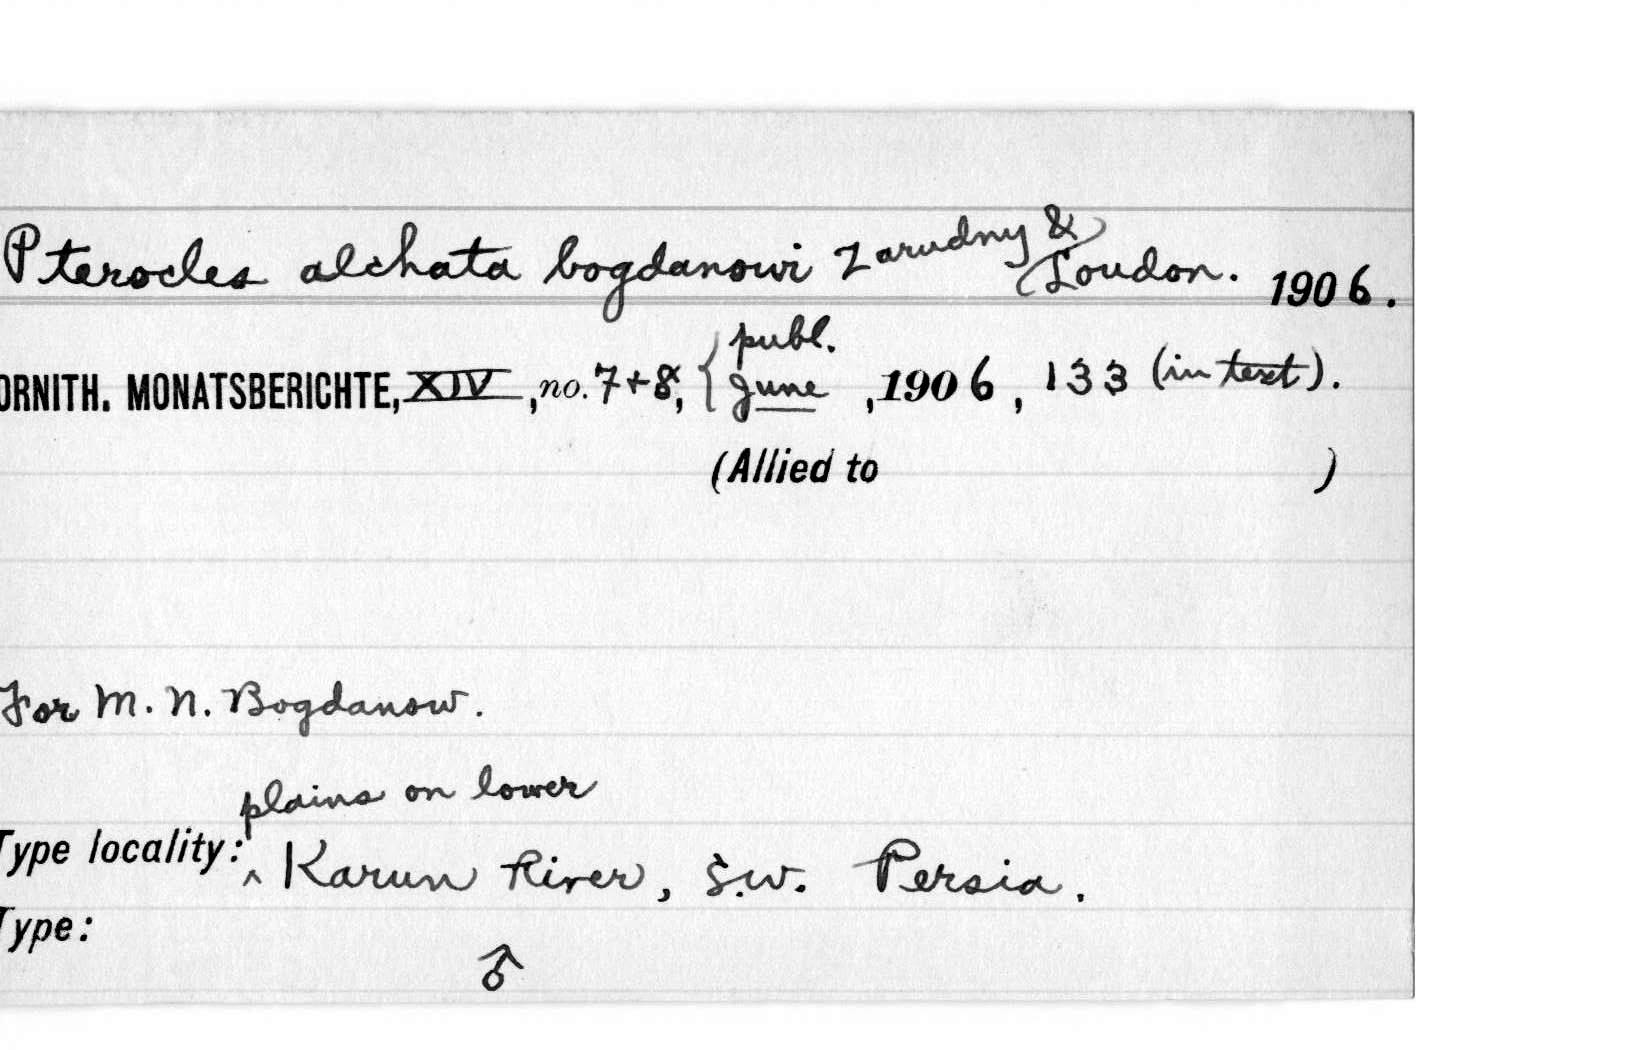 Pterocles alchata bogdanowi Zarudny &
Loudon. 1906.
publ.
ORNITH. MONATSBERICHTE, XIV, no. 7+8, June, 1906, 133 (in text).
(Allied to )
For M. N. Bogdanow.
plains on lower
Type locality: ^ Karun River, S.W. Persia.
Type:
♂